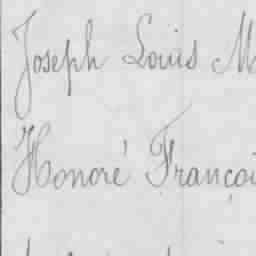 Joseph Louis M
Honoré Françoi